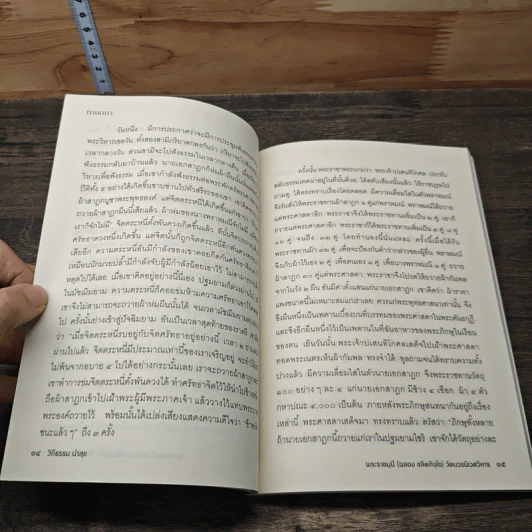 กานดา
วันหนึ่ง มีการประกาศว่าจะมีการประชุมฟังธรรม
พระวิหารเชตวัน ทั้งสองสามีภริยาตกลงกันว่า ภริยาจะไปฟังธรรม
เวลากลางวัน ส่วนสามีจะไปฟังธรรมในเวลากลางคืน
ฟังธรรมกลับมาบ้านแล้ว นายเอกสาฎกก็ห่มผ้าผืนนั้น
วิหารเพื่อฟังธรรม เมื่อเขากำลังฟังธรรมต่อพระพักตร์
ปีติทั้ง ๕ อย่างได้เกิดขึ้นซาบซ่านไปทั่วสรีระของเขา
ผ้าสาฎกบูชาพระพุทธองค์ แต่จิตตระหนี่ได้เกิดขึ้นแก่เขาว่า
ถวายผ้าสาฎกผืนนี้เสียแล้ว ผ้าห่มของนางพราหมณีก็ไม่มี
เราก็จักไม่มี" จิตตระหนี่ตั้งพันดวงเกิดขึ้นแล้ว
ศรัทธาดวงหนึ่งเกิดขึ้น แต่จิตนั้นก็ถูกจิตตระหนี่
เสียอีก ความตระหนี่อันมีกำลังของเขาคอยกีดกันศรัทธา
เหมือนนักมวยปล้ำมีกำลังจับผู้มีกำลังน้อยเอาไว้
หลุดไปได้เลย เมื่อเขาคิดอยู่อย่างนี้นี่เอง ปฐมยามก็ล่วงไป
ในมัชฌิมยาม ความตระหนี่ก็คอยข่มห้ามความศรัทธาเอาไว้
เขาจึงไม่สามารถจะถวายผ้าห่มผืนนั้นได้
ไป ครั้นย่างเข้าสู่ปัจฉิมยาม อันเป็นเวลาสุดท้ายของราตรี
ว่า "เมื่อจิตตระหนี่รบอยู่กับจิตศรัทธาอยู่อย่างนี้ เวลา ๒ ยาม
ผ่านไปแล้ว จิตตระหนี่มีประมาณเท่านี้ของเราเจริญอยู่
ไม่พ้นจากอบาย ๔ ไปได้อย่างกระนั้นเลย เราจะถวายผ้าสาฎก
เขาทำการข่มจิตตระหนี่ตั้งพันดวงได้ ทำศรัทธาจิตไว้ให้นำไปข้างหน้า
ถือผ้าสาฎกเข้าไปเฝ้าพระผู้มีพระภาคเจ้า แล้ววางไว้แทบพระบาท
พระองค์ถวายไว้ พร้อมนั้นได้เปล่งเสียงแสดงความดีใจว่า "ข้าพเจ้า
ชนะแล้ว ๆ" ถึง ๓ ครั้ง
๑๔ วิถีธรรม นำสุข
ครั้งนั้น พระราชาพระนามว่า พระเจ้าปเสนทิโกศล ประทับ
สดับธรรมเทศนาอยู่ในที่นั้นด้วย ได้สดับเสียงนั้นแล้ว ใช้ราชบุรุษไป
ถามดู ได้ทรงทราบเรื่องโดยตลอด มีความเลื่อมใสในตัวพราหมณ์
จึงรับสั่งให้พระราชทานผ้าสาฎก ๑ คู่แก่พราหมณ์ พราหมณ์ได้ถวาย
แด่พระศาสดาอีก พระราชาจึงให้พระราชทานเพิ่มเป็น ๒ คู่ เขาก็
ถวายแด่พระศาสดาอีก พระราชาก็ให้พระราชทานเพิ่มเป็น ๔ คู่ ๘ คู่
๑๖ คู่ จนถึง ๓๒ คู่ โดยทำนองนี้นั่นแหละ ครั้งนี้เมื่อได้รับ
พระราชทานผ้า ๓๒ คู่ เพื่อจะป้องกันคำว่ากล่าวของผู้อื่น พราหมณ์
จึงเก็บผ้าไว้เอง ๒ คู่ เพื่อตนเอง ๑ คู่ เพื่อนางพราหมณี ๑ คู่ ถวาย
ผ้าสาฎก ๓๐ คู่แด่พระศาสดา พระราชาจึงโปรดให้ถวายผ้ากัมพล
จากในวัง ๒ ผืน อันมีค่าตั้งแสนแก่นายเอกสาฎก เขาคิดว่า ผ้าราคา
แพงขนาดนี้ไม่เหมาะสมแก่เราเลย ควรแก่พระพุทธศาสนาเท่านั้น จึง
ขึงผืนหนึ่งเป็นเพดานเบื้องบนที่บรรทมของพระศาสดาในพระคันธกุฎี
และขึงอีกผืนหนึ่งไว้เป็นเพดานในที่ฉันอาหารของพระภิกษุในเรือน
ของตน เย็นวันนั้น พระเจ้าปเสนทิโกศลเสด็จไปเฝ้าพระศาสดา
ทอดพระเนตรเห็นผ้ากัมพล ทรงจำได้ ทูลถามจนได้ทราบความทั้ง
ปวงแล้ว มีความเลื่อมใสในตัวนายเอกสาฎก จึงพระราชทานวัตถุ
๑๐๐ อย่าง ๆ ละ ๔ แก่นายเอกสาฎก มีช้าง ๔ เชือก ม้า ๔ ตัว
กหาปณะ ๔,๐๐๐ เป็นต้น ภายหลังพระภิกษุสนทนากันอยู่ถึงเรื่อง
เหล่านี้ พระศาสดาเสด็จมา ทรงทราบแล้ว ตรัสว่า "ภิกษุทั้งหลาย
ถ้านายเอกสาฎกนี้ถวายแก่เราในปฐมยามไซร้ เขาจักได้วัตถุอย่างละ
พระราชมุนี (ฉลอง ชลิตกิจฺโจ) วัดบวรนิเวศวิหาร ๑๕